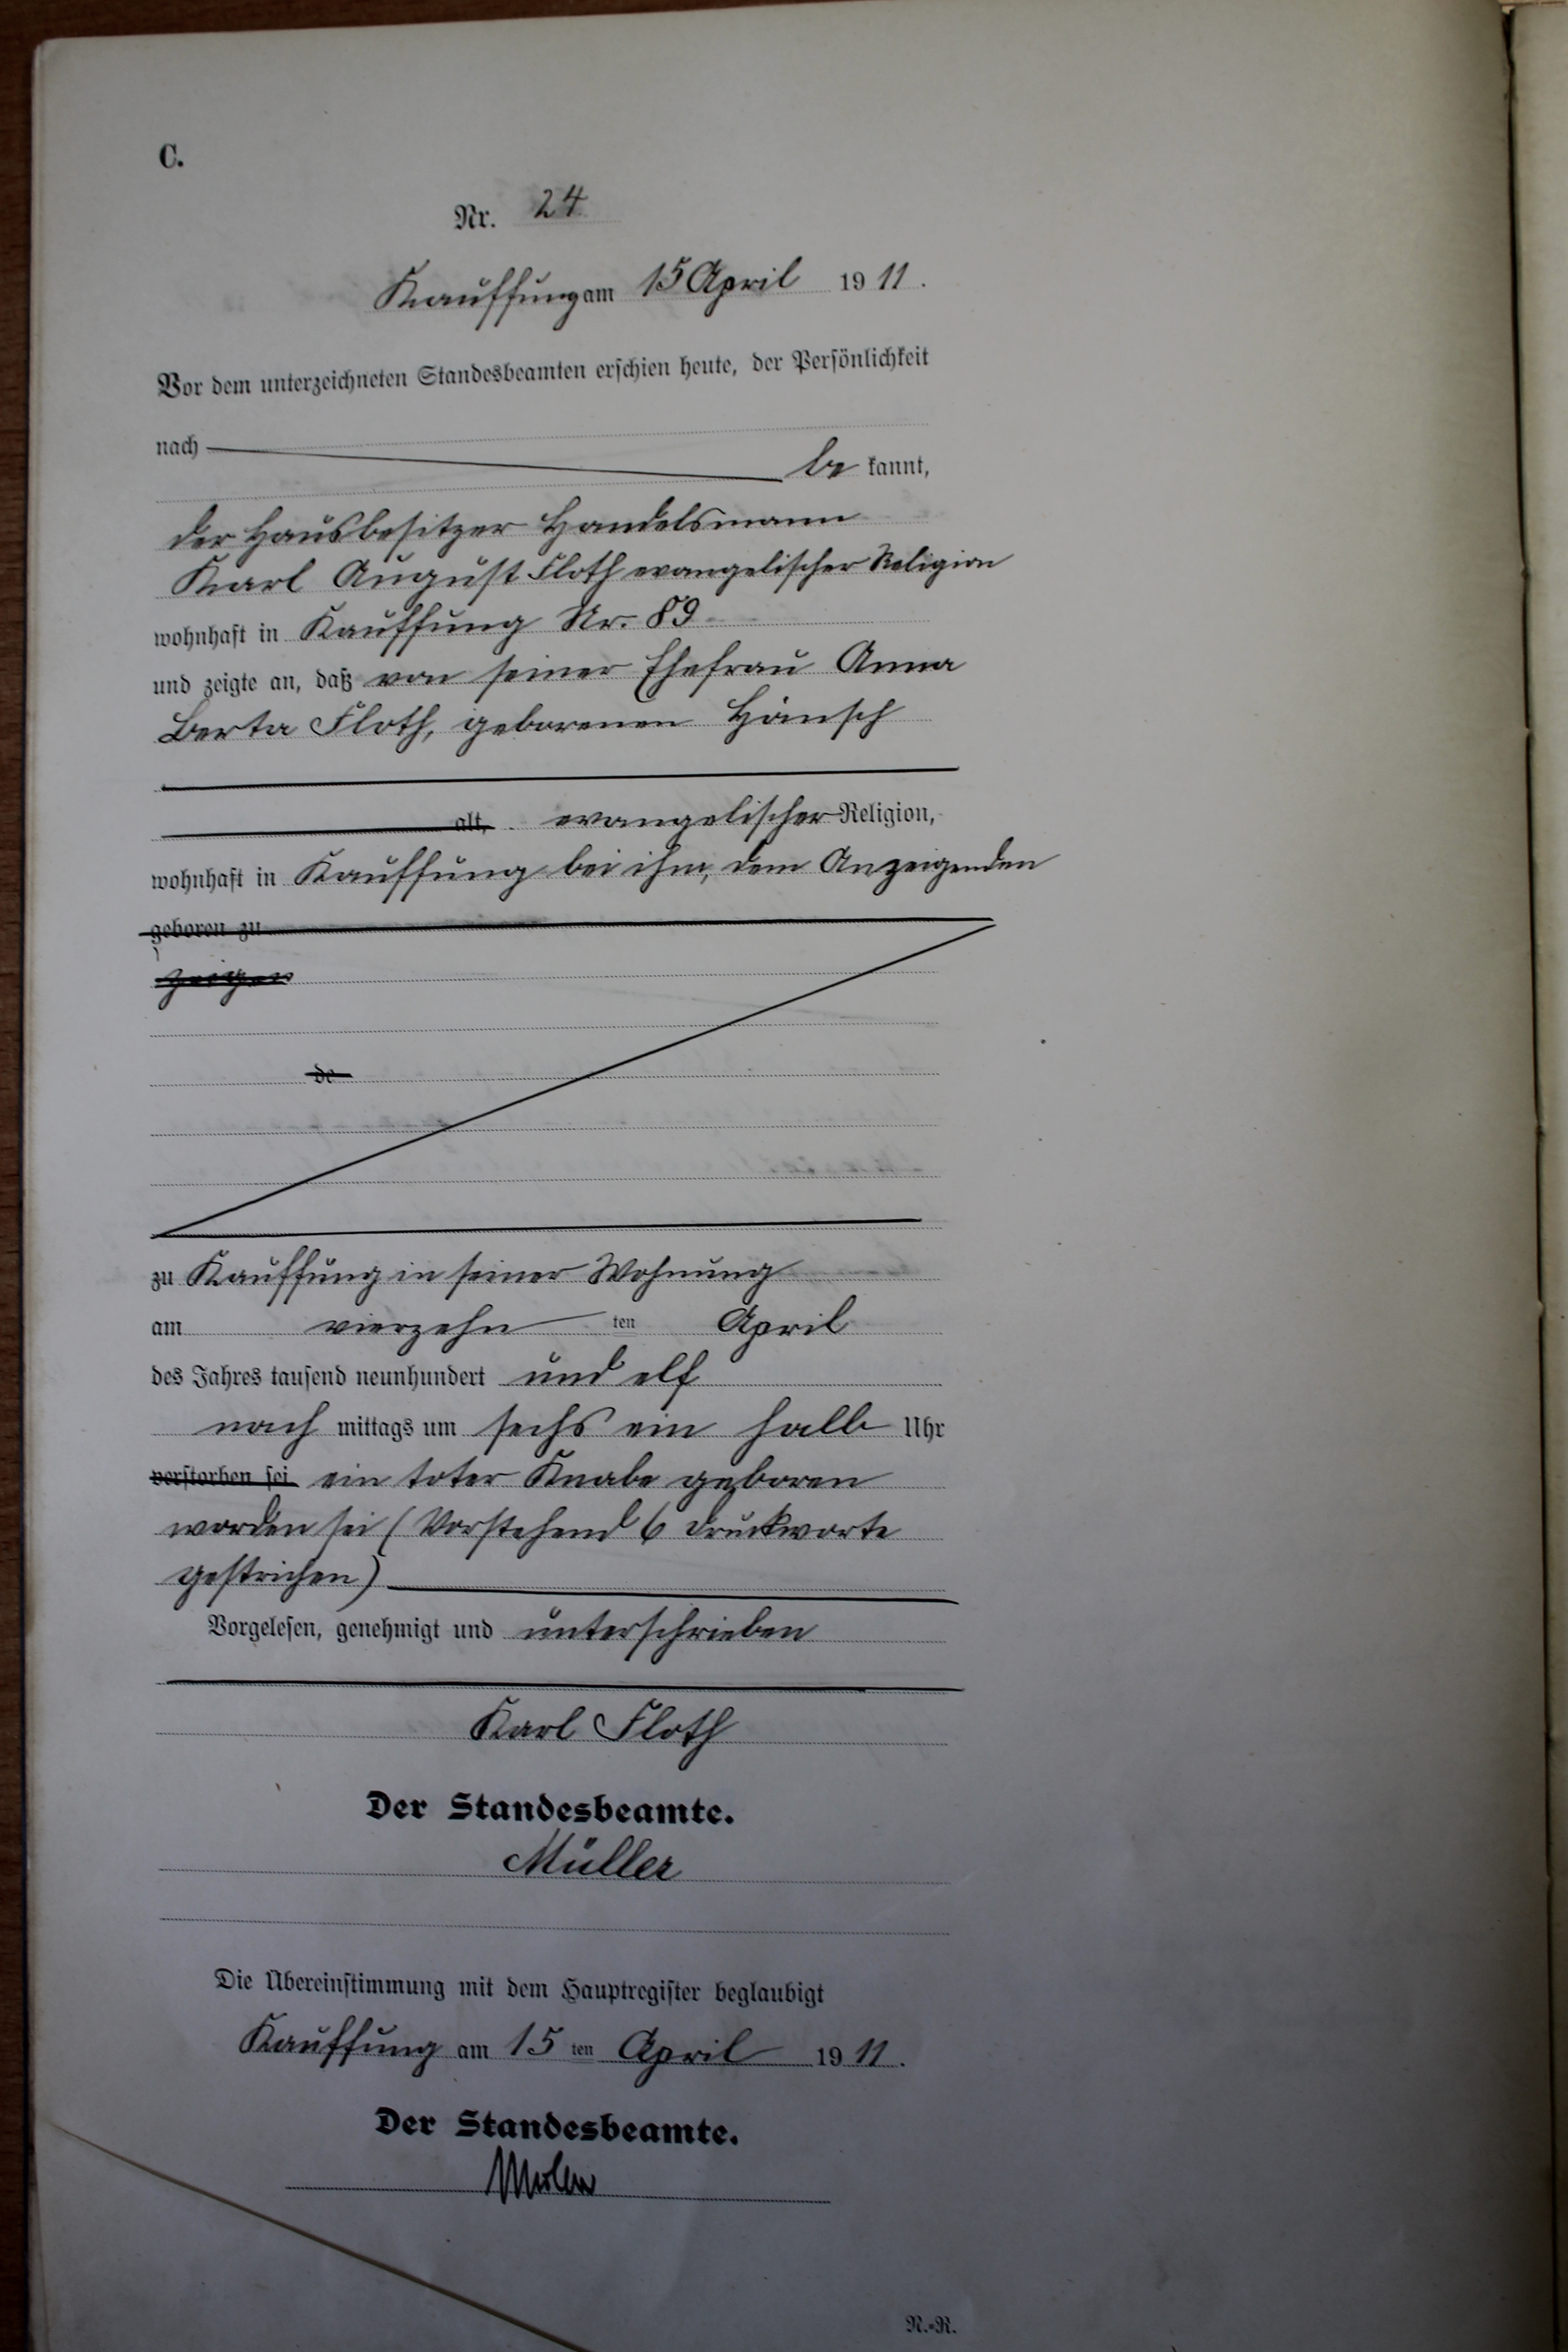 C.
Nr. 24
Kauffung am 15 April 1911.
Vor dem unterzeichneten Standesbeamten erschien heute, der Persönlichkeit
nach be kannt,
der Hausbesitzer Handelsmann
Karl August Floth evangelischer Religion
wohnhaft in Kauffung Nr. 89
und zeigte an, daß von seiner Ehefrau Anna
Berta Floth, geborenen Hänsch
alt, evangelischer Religion,
wohnhaft in Kauffung bei ihm, dem Anzeigenden
geboren zu
de
zu Kauffung in seiner Wohnung
am vierzehn ten April
des Jahres tausend neunhundert und elf
nach mittags um sechs ein halb Uhr
verstorben sei ein toter Knabe geboren
worden sei (Vorstehend 6 Druckworte
gestrichen)
Vorgelesen, genehmigt und unterschrieben
Karl Floth
Der Standesbeamte.
Müller
Die Übereinstimmung mit dem Hauptregister beglaubigt
Kauffung am 15 ten April 1911.
Der Standesbeamte.
Müller
N.-R.